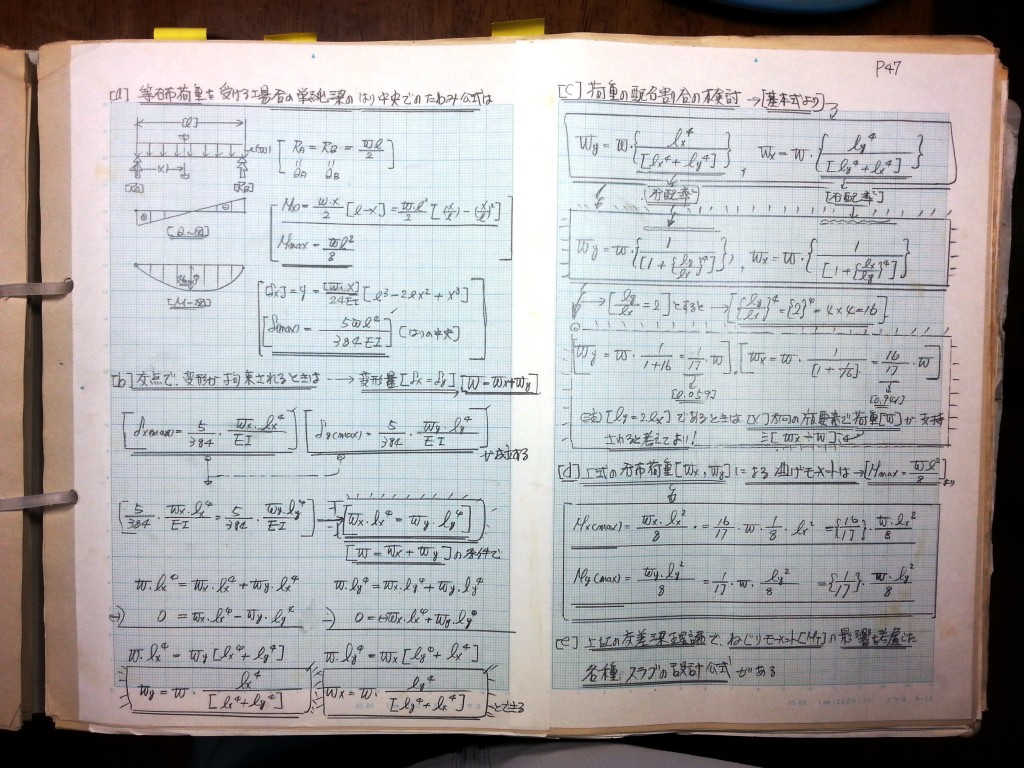 [a] 等分布荷重を受ける場合の単純梁のはり中央でのたわみ公式は
[l]
(w)
[x]
[RA] [RB]
[Q-図]
[M-図]
[RA = RB = wl/2]
QA QB
M(x) = w·x/2 [l-x] = w·l²/2 [(x/l) - (x/l)²]
Mmax = wl²/8
δ[x] = y = [w·x]/24EI [l³ - 2lx² + x³]
δ(max) = 5wl⁴/384EI [はりの中央]
[b] 交点で、変形が 拘束されるときは → 変形量[δx = δy], [W = Wx + Wy]
δx(max) = 5/384 · wx·lx⁴/EI
δy(max) = 5/384 · wy·ly⁴/EI
が成立する
[5/384 · wx·lx⁴/EI = 5/384 · wy·ly⁴/EI] → [wx·lx⁴ = wy·ly⁴]
[w = wx + wy]の条件で
w·lx⁴ = wx·lx⁴ + wy·lx⁴
-) 0 = wx·lx⁴ - wy·ly⁴
w·lx⁴ = wy[lx⁴ + ly⁴]
wy = w · lx⁴/[lx⁴ + ly⁴]
w·ly⁴ = wx·ly⁴ + wy·ly⁴
-) 0 = -wx·lx⁴ + wy·ly⁴
w·ly⁴ = wx[ly⁴ + lx⁴]
wx = w · ly⁴/[ly⁴ + lx⁴]
とできる
P47
[c] 荷重の配分割合の検討 → [基本式より]
wy = w·{lx⁴/[lx⁴ + ly⁴]}, wx = w·{ly⁴/[ly⁴ + lx⁴]}
[分配率] [分配率]
wy = w·{1/[1 + {ly/lx}⁴]}, wx = w·{1/[1 + {lx/ly}⁴]}
→ [ly/lx = 2]とすると → [{ly/lx}⁴ = {2}⁴ = 4×4 = 16]
[wy = w · 1/1+16 = 1/17 · w], [wx = w · 1/[1 + 1/16] = 16/17 · w]
[0.059] [0.941]
(注) [ly = 2·lx]であるときは [X]方向の版要素で荷重[W]が支持
されると考えてよい! [wx ≒ w]
[d] 上式の分布荷重[wx, wy]による 曲げモーメントは → [Mmax = wl²/8]より
Mx(max) = wx·lx²/8 = 16/17 · w · 1/8 · lx² = {16/17} · w·lx²/8
My(max) = wy·ly²/8 = 1/17 · w · ly²/8 = {1/17} · w·ly²/8
[e] 上記の交差梁理論で、ねじりモーメント[MT]の影響を考慮した
各種 スラブの設計公式 がある